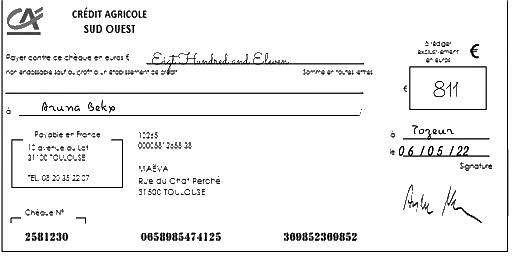 CA
CRÉDIT AGRICOLE
SUD OUEST
à rédiger
exclusivement
en euros €
Payer contre ce chèque en euros € Eigt Hundred and Eleven
non endossable sauf au profit d'un établissement de crédit Somme en toutes lettres
€ 811
à Aruna Bekx
Payable en France
10 avenue du Lot
31100 TOULOUSE
TEL. 08 20 35 22 07
10265
00008812658 38
MAËVA
Rue du Chat Perché
31500 TOULOUSE
à Tozeur
le 06/05/22
Signature
Chèque N°
2581230 0658985474125 369852369852